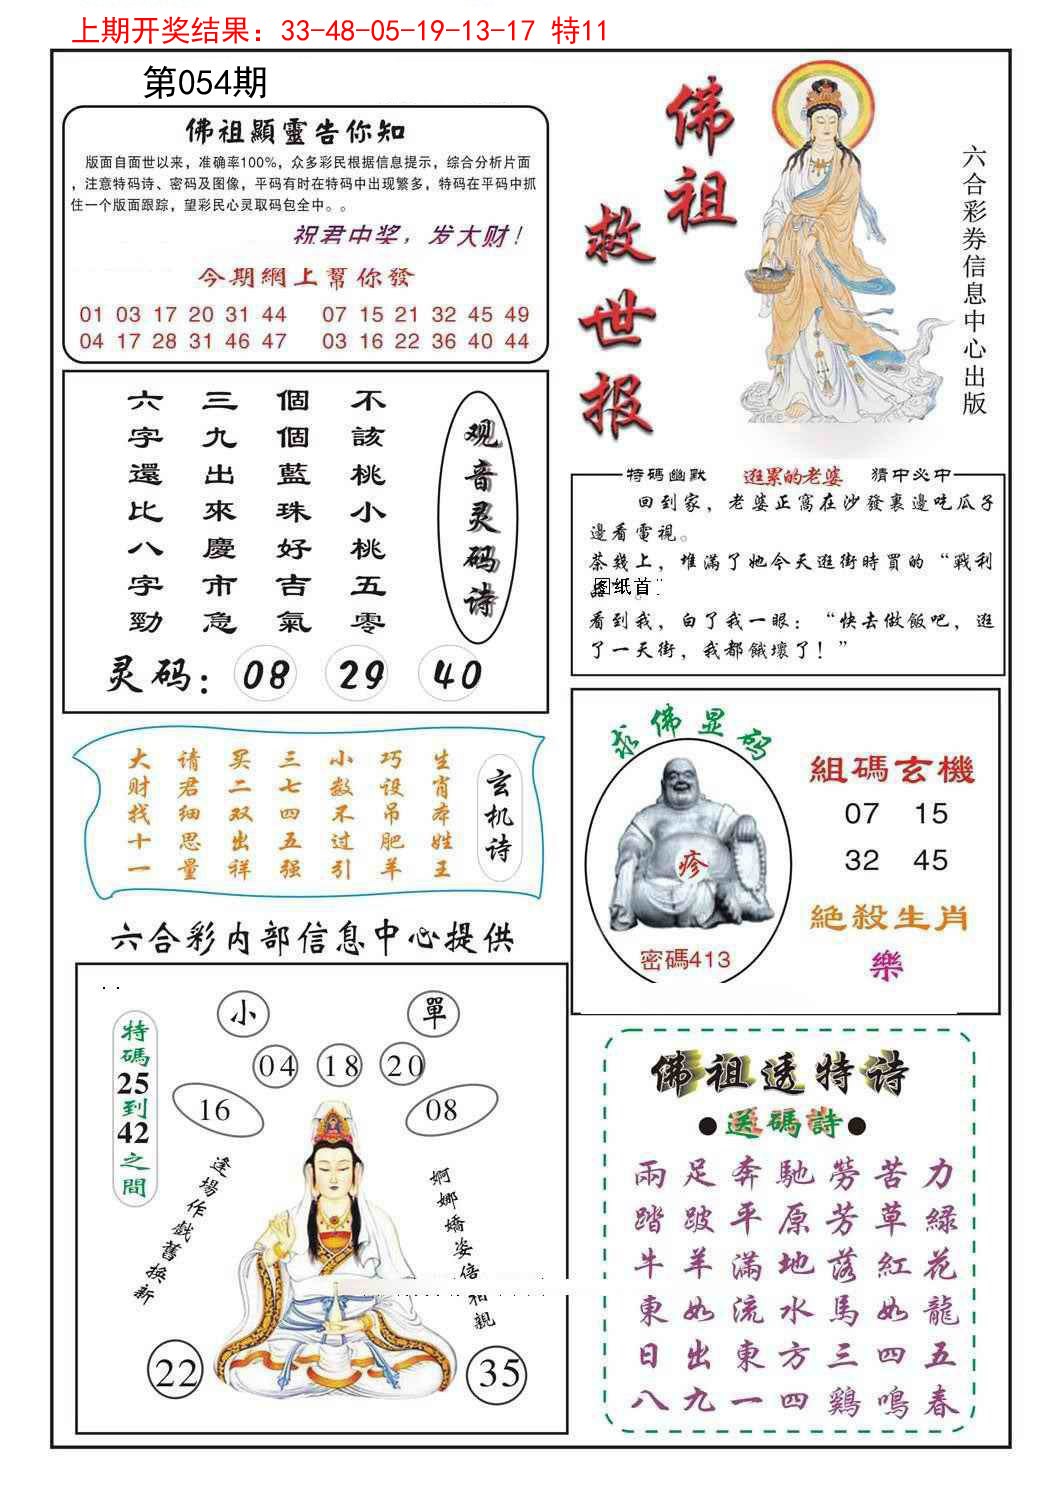 上期开奖结果：33-48-05-19-13-17 特11
第054期
佛祖顯靈告你知
版面自面世以来，准确率100%，众多彩民根据信息提示，综合分析片面
，注意特码诗、密码及图像，平码有时在特码中出现繁多，特码在平码中抓
住一个版面跟踪，望彩民心灵取码包全中。。
祝君中奖，发大财！
今期網上幫你發
01 03 17 20 31 44 07 15 21 32 45 49
04 17 28 31 46 47 03 16 22 36 40 44
佛祖
救世报
六合彩券信息中心出版
观音灵码诗
不該桃小桃五零
個個藍珠好吉氣
三九出來慶市急
六字還比八字勁
灵码：08 29 40
特碼幽默 逛累的老婆 猜中必中
回到家，老婆正窩在沙發裏邊吃瓜子
邊看電視。
茶幾上，堆滿了她今天逛街時買的“戰利
图纸首
看到我，白了我一眼：“快去做飯吧，逛
了一天街，我都餓壞了！”
玄机诗
生肖本姓王
巧设吊肥羊
小数不过引
三七四五强
买二双出祥
请君细思量
大财找十一
求佛显码
疹
密碼413
組碼玄機
07 15
32 45
絕殺生肖
樂
六合彩内部信息中心提供
小 單
04 18 20
16 08
特碼25到42之間
逢場作戲舊换新
婀娜嬌姿倍相親
22 35
佛祖透特诗
●送碼詩●
兩足奔馳勞苦力
踏跛平原芳草綠
牛羊滿地落紅花
東如流水馬如龍
日出東方三四五
八九一四鷄鳴春